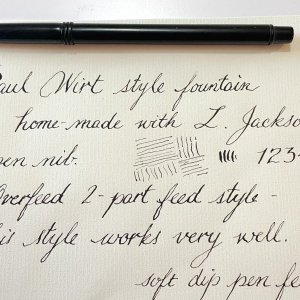 Paul Wirt style fountain
home-made with L. Jackso
pen nib. 123
Overfeed 2-part feed style -
his style works very well.
soft dip pen fe